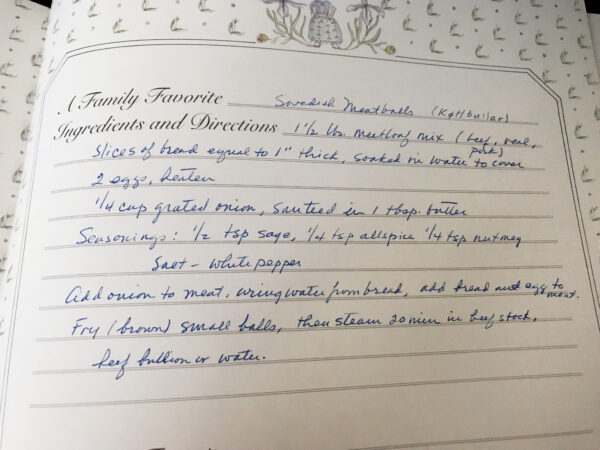 A Family Favorite Swedish Meatballs (Köttbullar)
Ingredients and Directions 1 1/2 lbs. meatloaf mix (beef, veal,
pork)
slices of bread equal to 1" thick, soaked in water to cover
2 eggs, beaten
1/4 cup grated onion, sautéed in 1 tbsp. butter
Seasonings: 1/2 tsp sage, 1/4 tsp allspice 1/4 tsp nutmeg
Salt - white pepper
Add onion to meat, wring water from bread, add bread and egg to
meat.
Fry (brown) small balls, then steam 20 min in beef stock,
beef bullion or water.